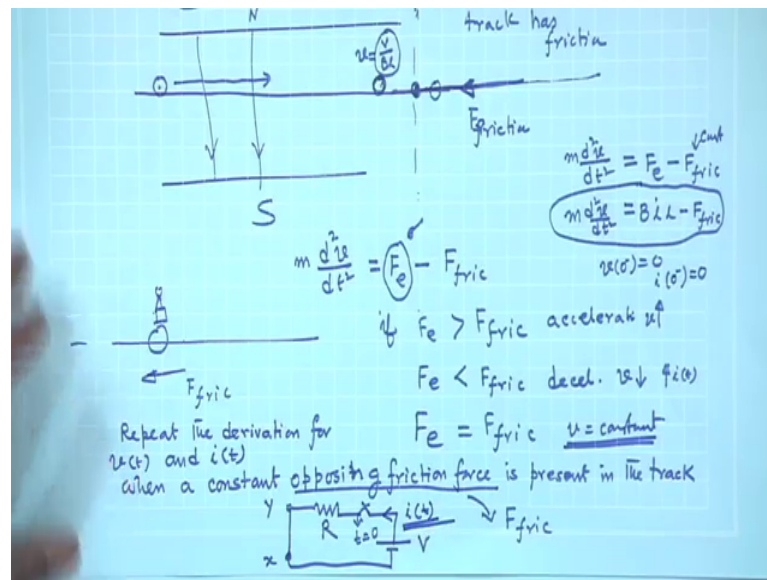 N
track has
friction
v = V/BL
Ffriction
↓const
m d²v/dt² = Fe − Ffric
m d²v/dt² = BiL − Ffric
S
v(0⁻)=0
i(0⁻)=0
m d²v/dt² = Fe − Ffric
if Fe > Ffric accelerate v↑
Ffric
Fe < Ffric decel. v↓ ↑i(t)
Fe = Ffric v = constant
Repeat the derivation for
v(t) and i(t)
when a constant opposing friction force is present in the track
Ffric
y
R
t=0
i(t)
V
x